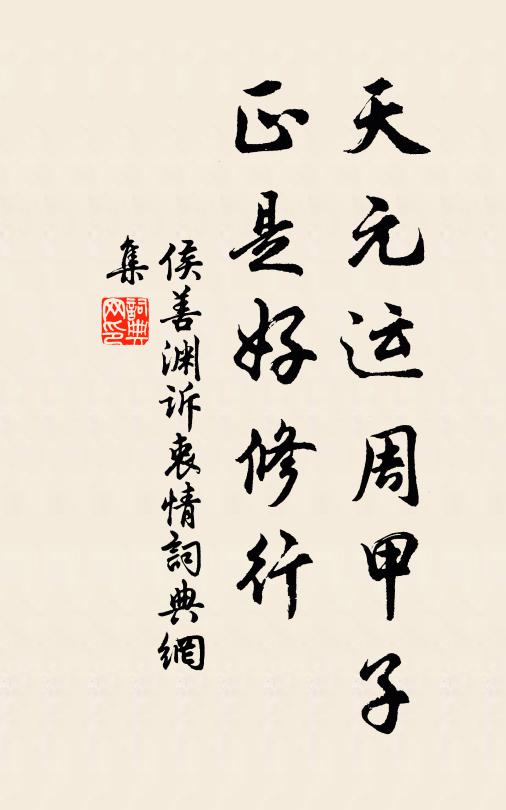 天元运周甲子
正是好修行
侯善渊诉衷情詞典網
集
詞典
网印